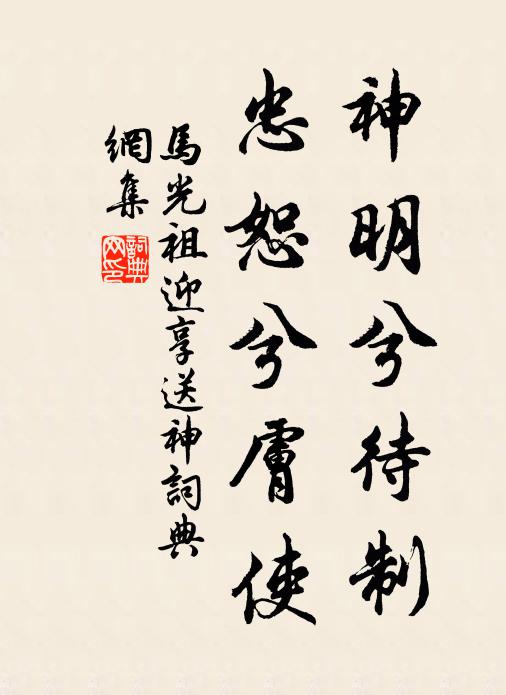 神明兮待制
忠恕兮膚使
馬光祖迎享送神詞典
網集
詞典網印